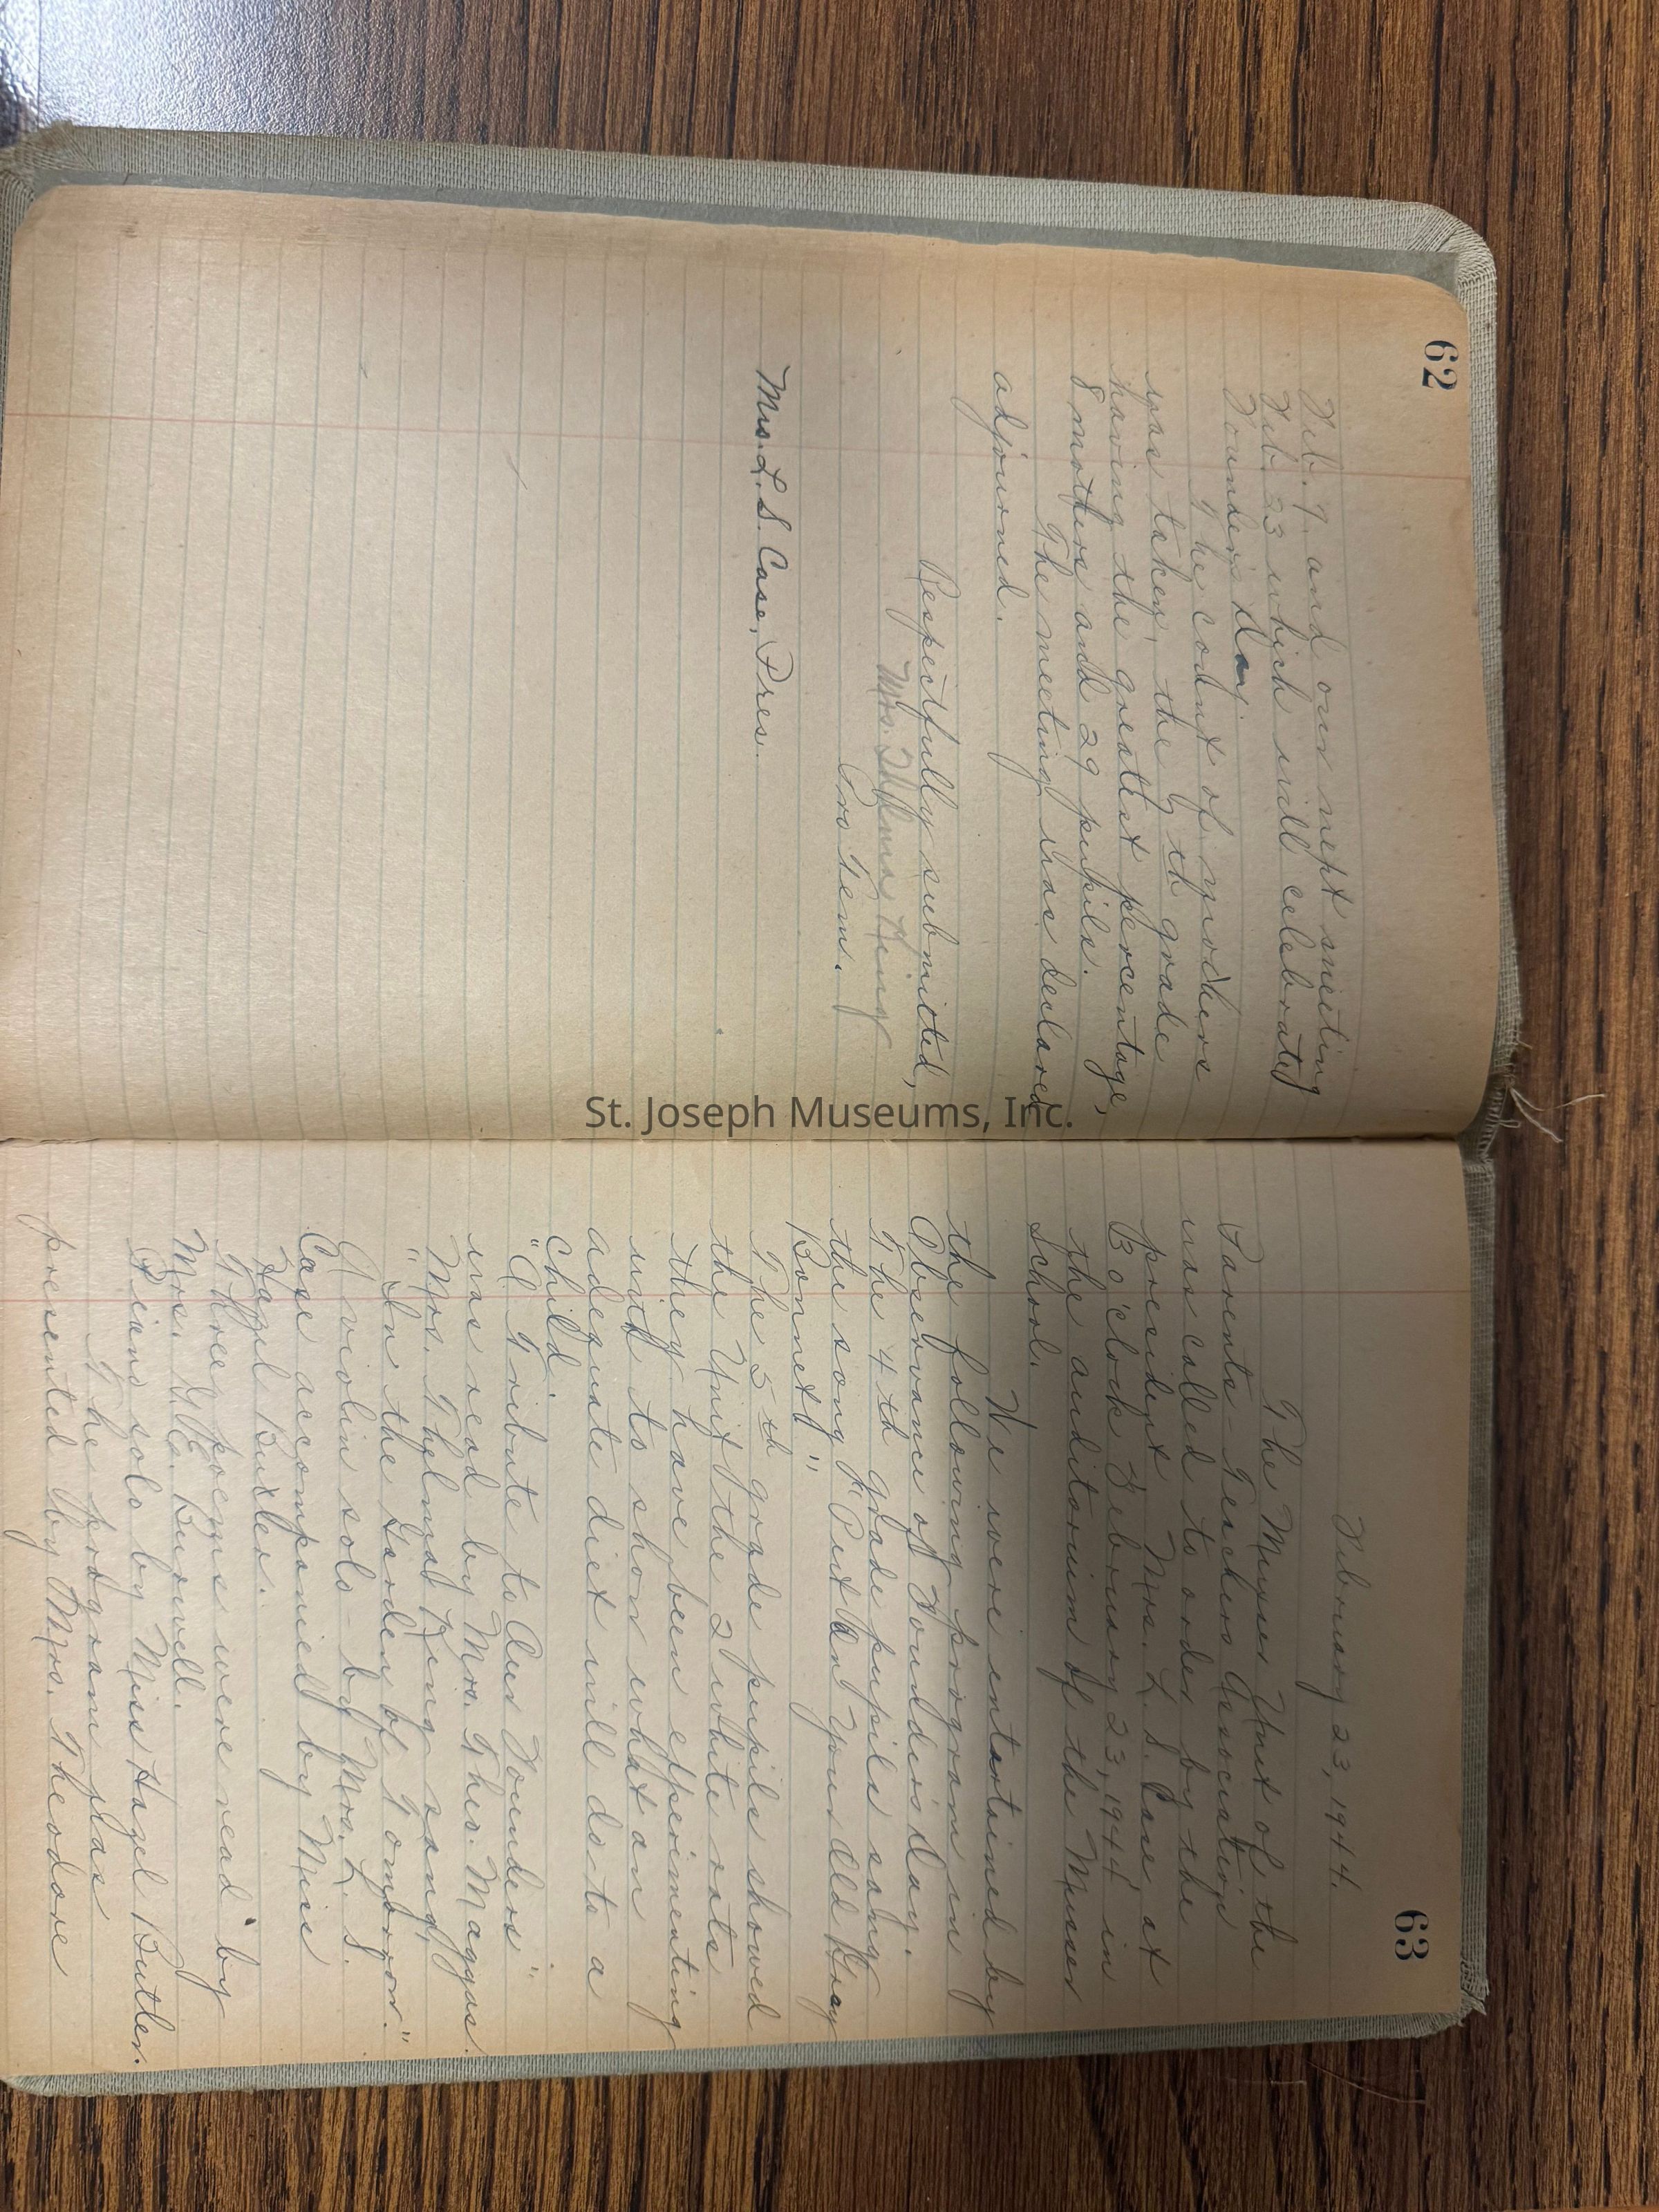 62
Feb. 9, and our next meeting
Feb. 23 which will celebrate
Founder's Day.
The count of mothers
was taken, the 7th grade
having the greatest percentage,
8 mothers and 29 pupils.
The meeting was declared
adjourned.
Respectfully submitted,
Mrs. Thelma King
Pro tem.
Mrs. L. S. Case, Pres.
63
February 23, 1944.
The Musser Unit of the
Parents-Teachers Association
was called to order by the
president Mrs. L. S. Case, at
3 o'clock February 23, 1944 in
the auditorium of the Musser
School.
We were entertained by
the following program in
Observance of Founders Day.
The 4th grade pupils sang
the song "Put On Your Old Gray
Bonnet"
The 5th grade pupils showed
the Unit the 2 white rats
they have been experimenting
with to show what an
adequate diet will do to a
child.
"A Tribute to Our Founders"
was read by Mrs. Theo. Maggas.
Mrs. Thelma King sang,
"In the Garden of Tomorrow."
A violin solo - by Mrs. L. S.
Case accompanied by Miss
Hazel Butler.
Three poems were read by
Mrs. Burwell.
Piano solo by Miss Hazel Butler.
The program was
presented by Mrs. Theodore
St. Joseph Museums, Inc.